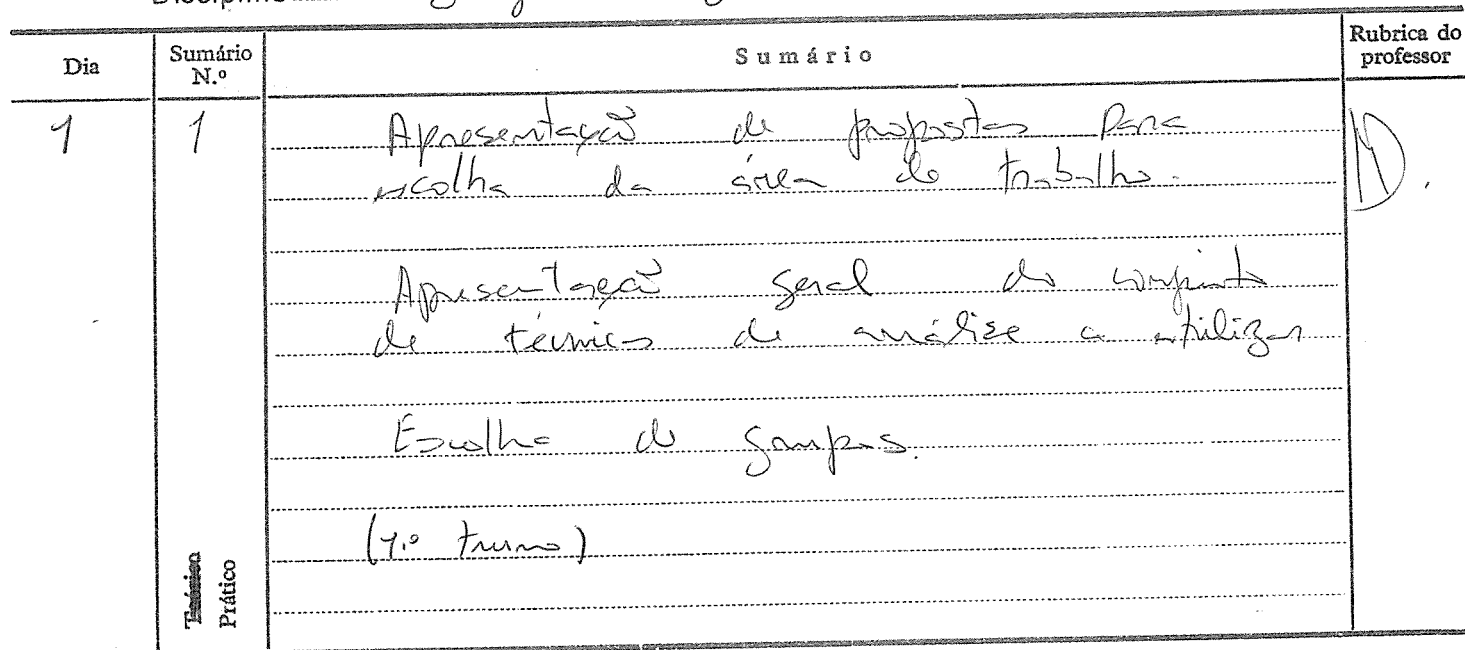 Dia
Sumário
N.º
Sumário
Rubrica do
professor
1
1
Apresentação de propostas para
escolha da área de trabalho.
Apresentação geral do conjunto
de técnicas de análise a utilizar
Escolha de grupos.
(1.º turno)
Teórico
Prático